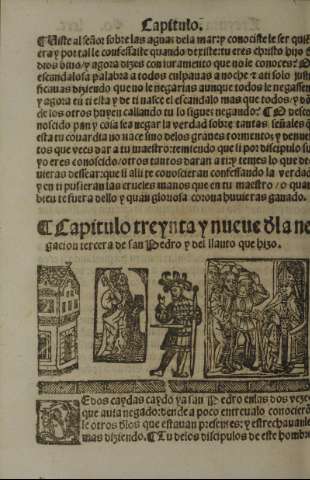 Capitulo.
¶ Viste al señor sobre las aguas dela mar: y conociste le ser quiẽ
era: y por tal le confessaste quando dexiste: tu eres christo hijo d̃
dios biuo/ y agora dizes con iuramento que no le conoces: D
escandalosa palabra a todos culpauas a noche τ ati solo justi
ficauas diziendo que no le negarias aunque todos le negassen
y agora en ti esta y de ti nasce el escandalo mas que todos/ y
de los otros huyen callando tu lo sigues negando: desco
noscido pan y cosa fea negar la verdad sobre tantas señales
esta tu couardia no nace sino delos graues tormentos/ y denue
tos que vees dar a tu maestro: temiendo que si por discipulo su
yo eres conoscido/ otros tantos daran a ti: y temes lo que de
uieras dessear: que si alli te conoscieran confessando la verdad
y en ti pusieran las crueles manos que en tu maestro/ o quan
bien te fuera dello y quan gloriosa corona huuieras ganado.
¶ Capitulo treynta y nueue d̃la ne
gacion tercera de san Pedro y del llanto que hizo.
EDos caydas caydo ya san Pedro enlas dos vezes
que auia negado: dende a poco entreualo conocierõ
le otros d̃los que estauan presentes: y estrechauanle
mas diziendo. ¶ Tu delos discipulos de este hombre